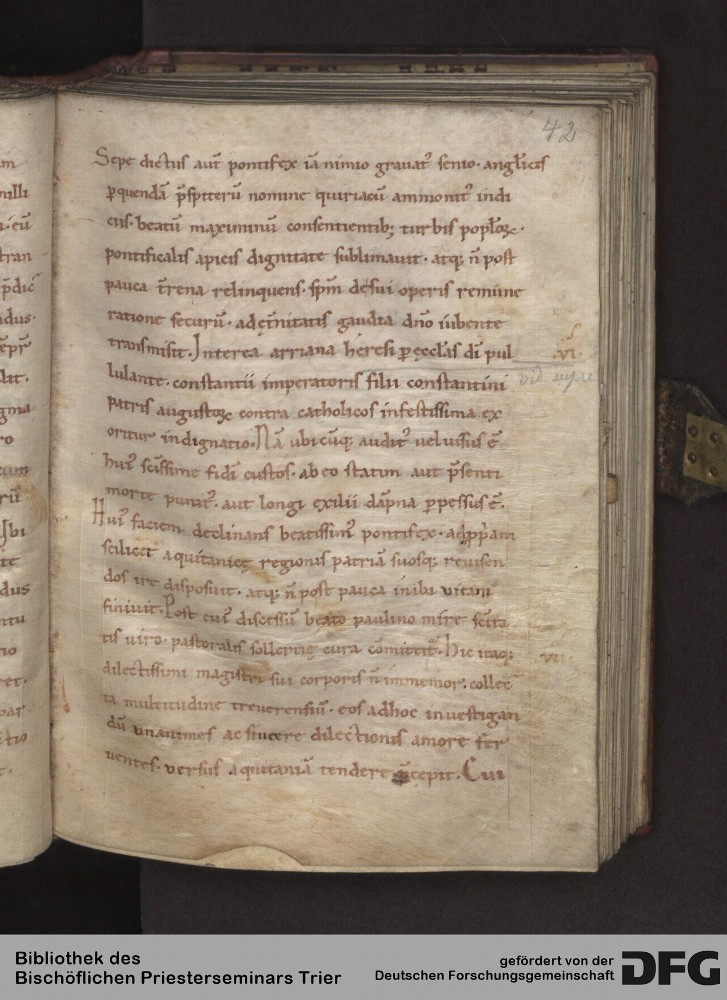 42
Sepe dictus aut̄ pontifex iā nimio grauat᷒ senio · angl̄icis
ꝑ quendā p̄sp̄iterū nomine quiriacū ammonit᷒ indi
ciis · beatū maximinū consentientib; turbis popl̄oꝝ ·
pontificalis apicis dignitate sublimauit · atq; n̄ post
pauca t̄rena relinquens · sp̄m de sui operis remune
ratione securū · ad et̄nitatis gaudia dn̄o iubente
transmisit. Interea arriana heresi ꝑ ęccl̄as dī pul
lulante · constantii imperatoris filii constantini
patris augustoꝝ contra catholicos infestissima ex
oritur indignatio. Nā ubicūq; audit᷒ uel uisus ē
hui᷒ sc̄issime fidī custos · ab eo statim aut p̄senti
morte punit᷒ · aut longi exilii dāpna ꝑpessus ē.
Hui᷒ faciem declinans beatissim᷒ pontifex ·
scilicet aquitanięę regionis patriā suosq; reuisen
dos ire disposuit · atq; n̄ post pauca inibi uitam
finiuit. Post cui᷒ discessū beato paulino mire sc̄ita
tis uiro · pastoralis sollertię cura cōmittit᷒. Hic itaq;
dilectissimi magistri sui corporis n̄ inmemor · collec
ta multitudine treuerensiū · eos ad hoc inuestigan
dū unanimes ac sincere dilectionis amore fer
uentes · uersus aquitaniā tendere cepit. Cui
.vi.
vid. supra
vii
Bibliothek des
Bischöflichen Priesterseminars Trier
gefördert von der
Deutschen Forschungsgemeinschaft
DFG